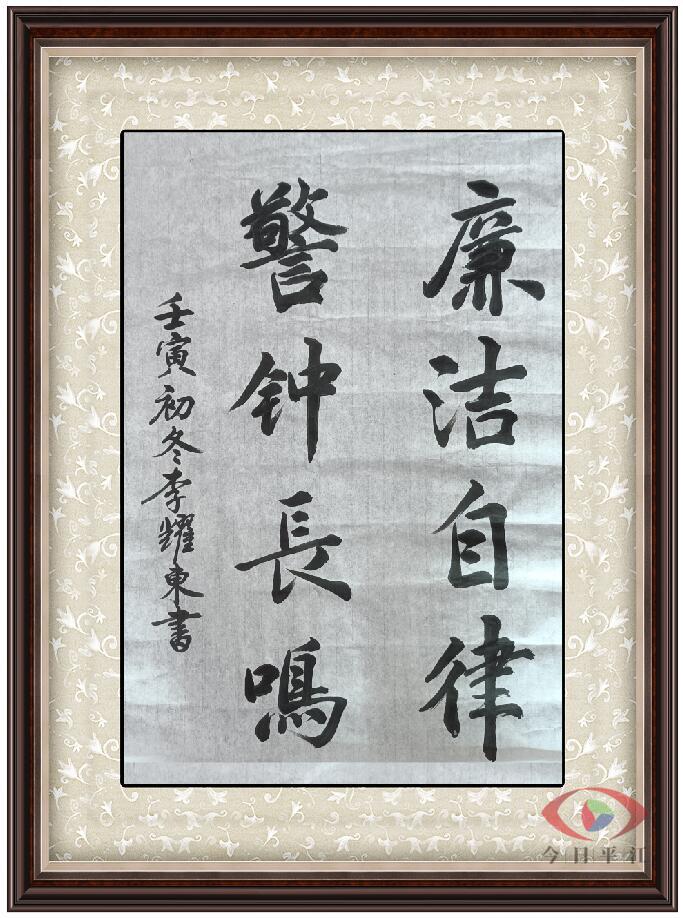 廉洁自律
警钟長鳴
壬寅初冬李耀東書
今日平江